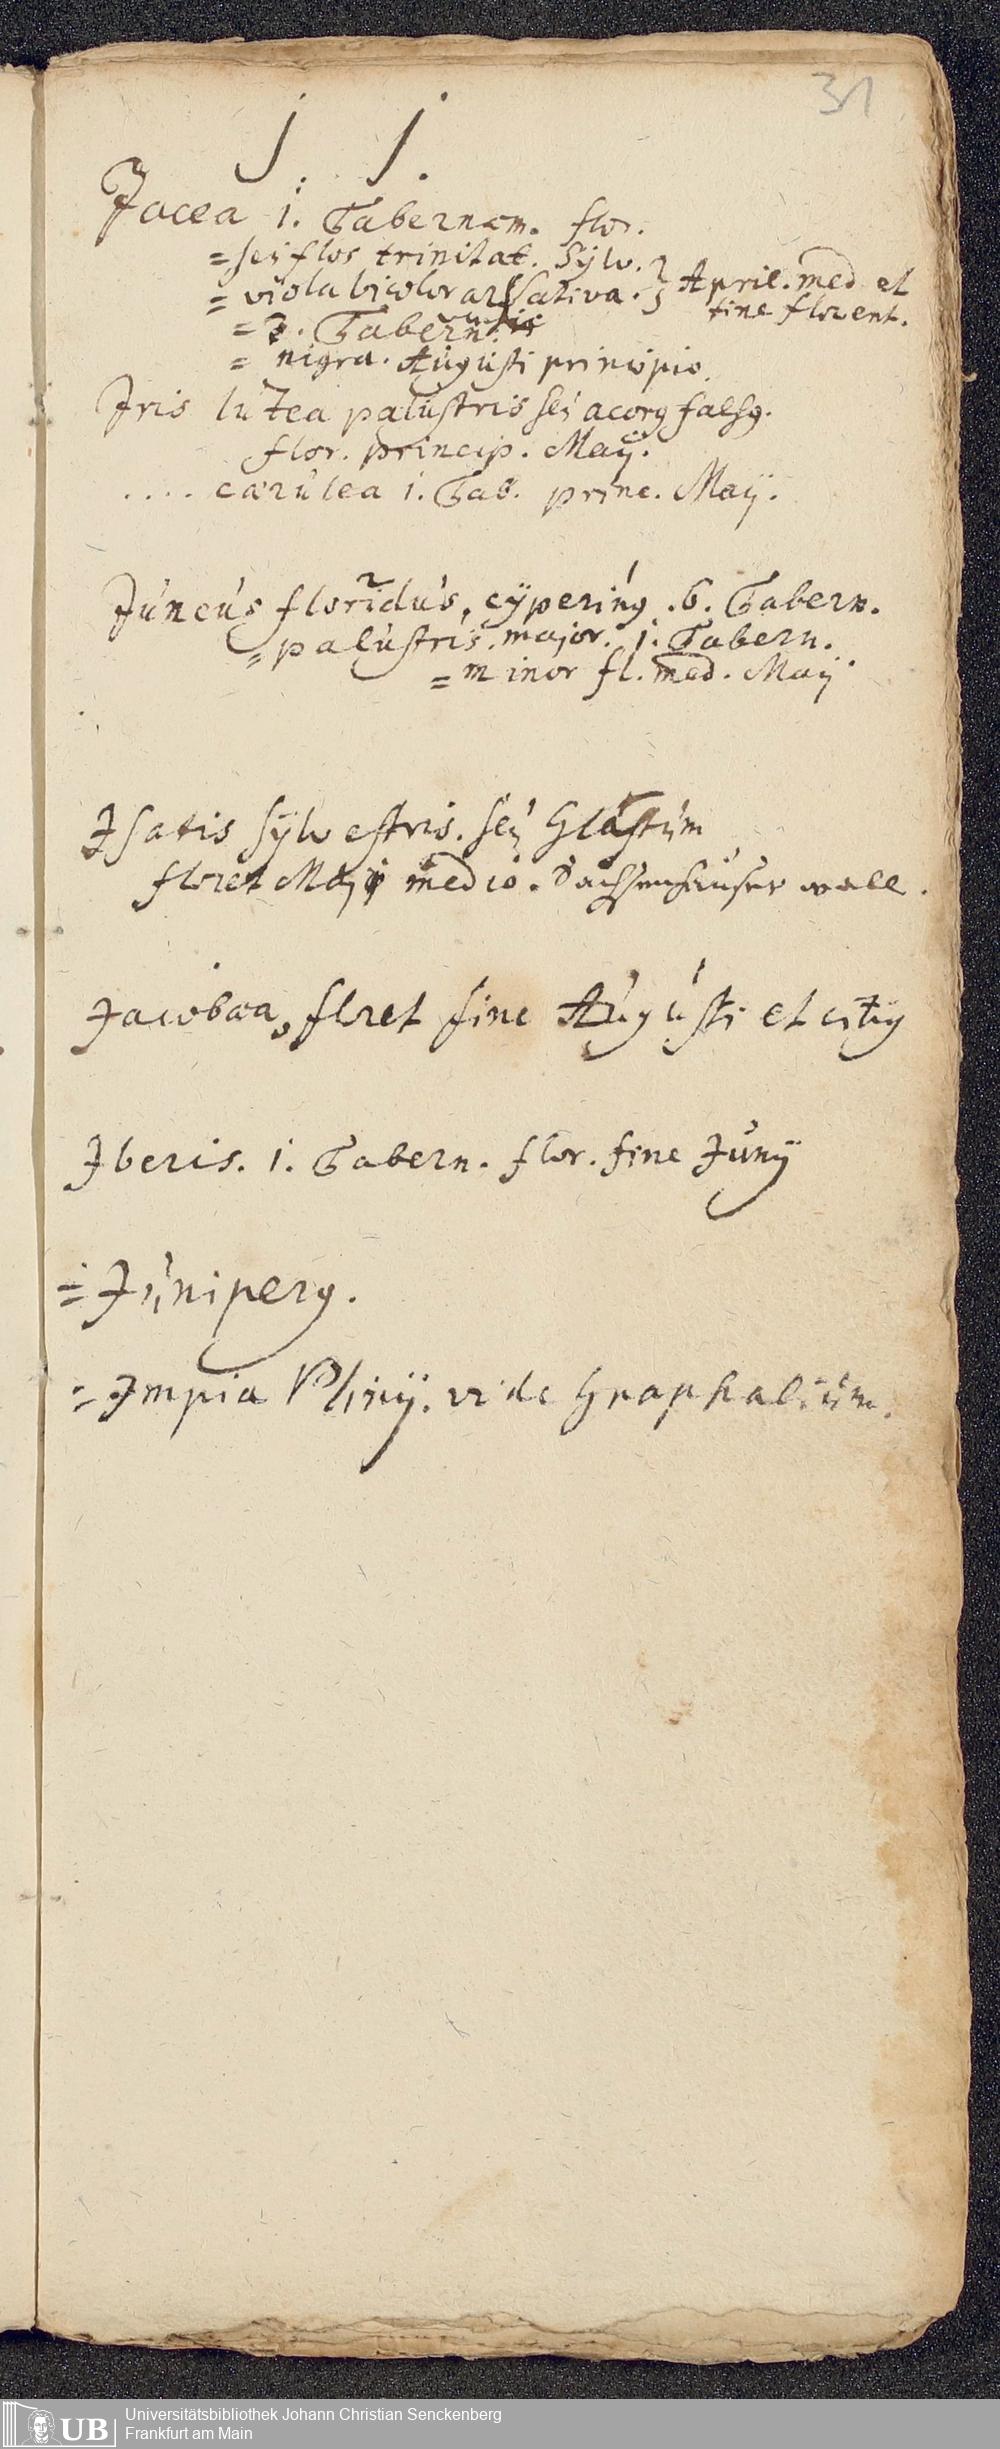 31
J. J.
Jacea 1. Tabernaem. flor.
= seú flos trinitat. Sÿlv. } April. med et
= viola bicolor arvensis sativa. } fine florent.
= 2. Tabern.
= nigra. Augústi principio.
Iris lútea palústris seú acorg falsg.
flor. princip. Maÿ.
.... caerúlea 1. Tab. princ. Maÿ.
Júncús floridús, cÿperinúg .6. Tabern.
= palústris. major. 1. Tabern.
= minor fl. med. Maÿ
Isatis sÿlvestris. seú Glastúm
floret Maji medio. Sachsenhäuser wall.
Jacobaea, floret fine Augústi et citig
Iberis. 1. Tabern. flor. fine Júnÿ
= Júniperg.
= Impia Plinÿ. vide Gnaphaliúm.
UB
Universitätsbibliothek Johann Christian Senckenberg
Frankfurt am Main